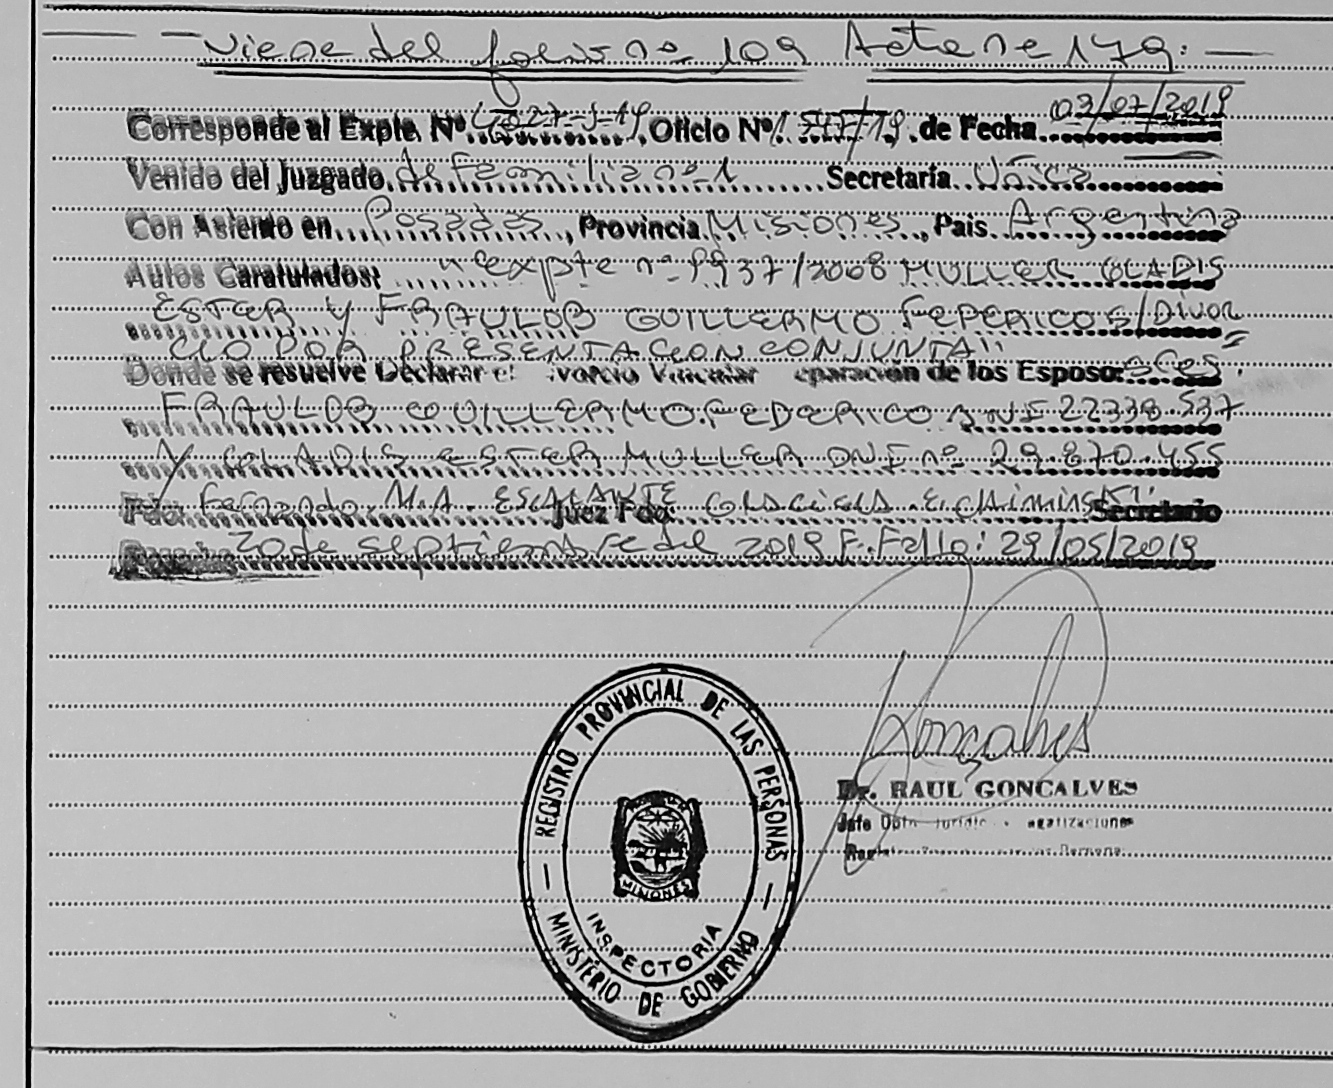 Viene del folio nº 109 Acta nº 179:
03/07/2019
Corresponde al Expte. Nº 4027-J-19, Oficio Nº 1.577/19. de Fecha
Venido del Juzgado de Familia nº 1 Secretaría Única
Con Asiento en Posadas, Provincia Misiones, Pais Argentina
Autos Caratulados: "expte nº 9937/2008 MULLER GLADIS
ESTER Y FRAULOB GUILLERMO FEDERICO S/Divor
CIO POR PRESENTACION CONJUNTA"
Donde se resuelve Declarar el Vincular de los Esposos
FRAULOB GUILLERMO FEDERICO DNI 22338.537
Y GLADIS ESTER MULLER DNI nº 29.870.455
Fdo: Fernando M.A. ESCALANTE Juez Fdo: Secretario
20 de septiembre del 2019 F. Fallo: 29/05/2019
Goncalves
Dr. RAUL GONCALVES
Jefe Dpto
REGISTRO PROVINCIAL DE LAS PERSONAS
MISIONES
INSPECTORIA
MINISTERIO DE GOBIERNO